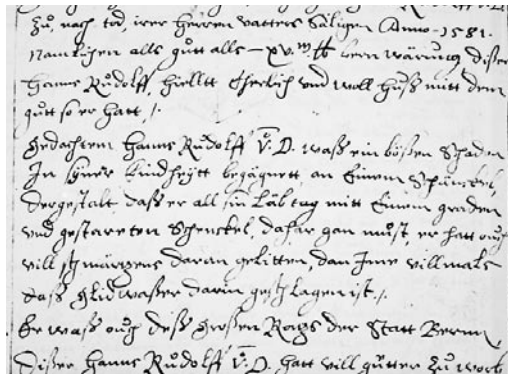 Zů, nach tod, irer herren vatters Säligen Anno 1581.
Namlichen alls gůtt alls – xv.ᵐ. ℔ bern wärung, diser
Hanns Růdolff, hielltt Eherlich und woll huß mitt dem
gůtt so er hatt /.
Gedachtem Hanns Růdolff V. D. waß ein bößen Schaden
In syner kindheytt begägnett an Einem Schänckel,
Dergestalt daß er all sin Läbtag mitt Einem graden
und gestarten Schenckel, dahar gan můst, er hatt ouch
vill schmärzens daran gelitten, dan Ime villmals
daß glidwaßer darin geschlagen ist /.
Er waß ouch deß großen Rahts der Statt Bernn,
Diser Hanns Růdolff V. D. hatt vill gůtter Zů worb